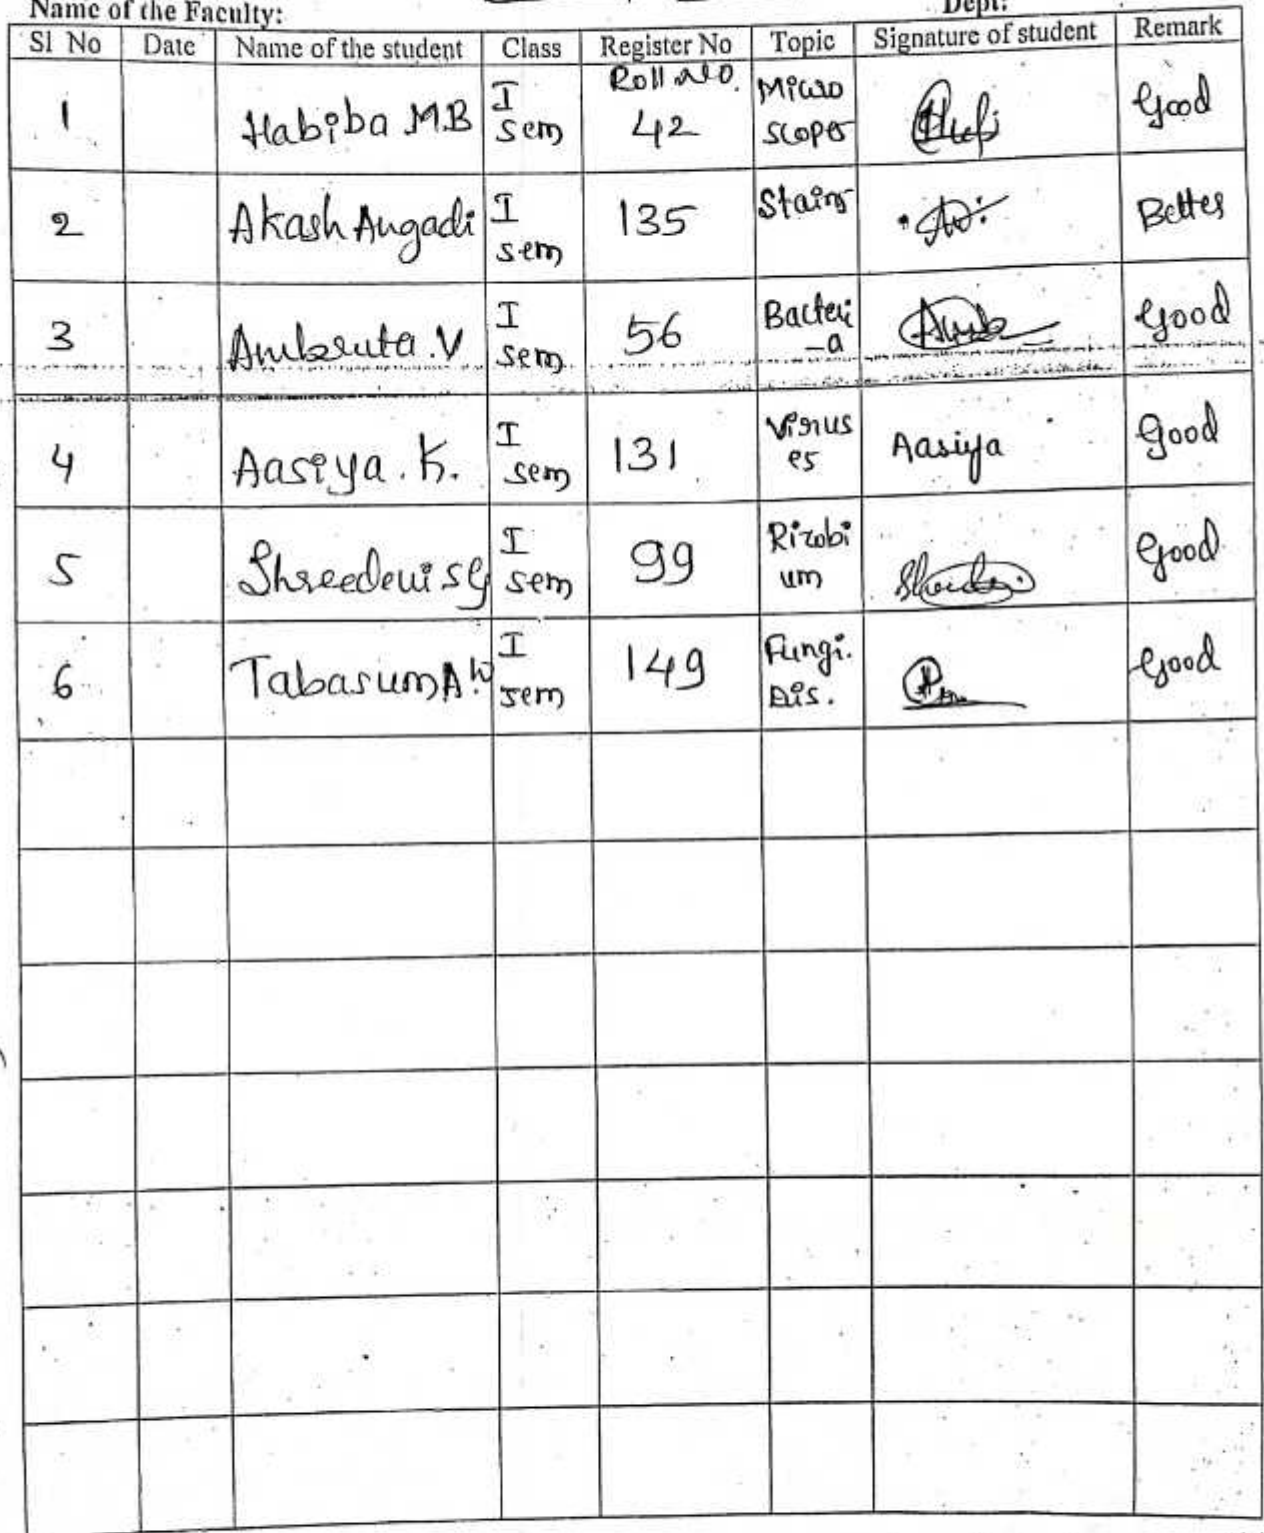 Name of the Faculty: Dept:
Sl No Date Name of the student Class Register No Topic Signature of student Remark
Roll No.
1 Habiba M.B I sem 42 Micro scopes Good
2 Akash Angadi I sem 135 Stains Better
3 Ambruta.V I sem 56 Bacteri -a Good
4 Aasiya.K. I sem 131 Virus es Aasiya Good
5 Shreedevi S G I sem 99 Rizobi um Good
6 Tabasum A.W I sem 149 Fungi. Dis. Good